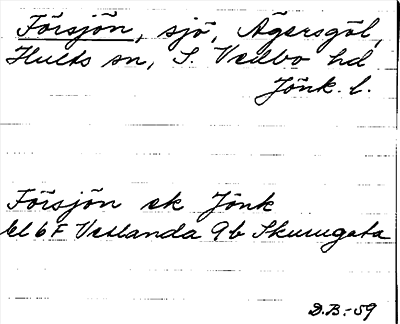 Försjön, sjö, Ägersgöl,
Hults sn, S. Vedbo hd
Jönk. l.
Försjön ek Jönk
bl 6F Vetlanda 9b Skurugata
D.B.-59